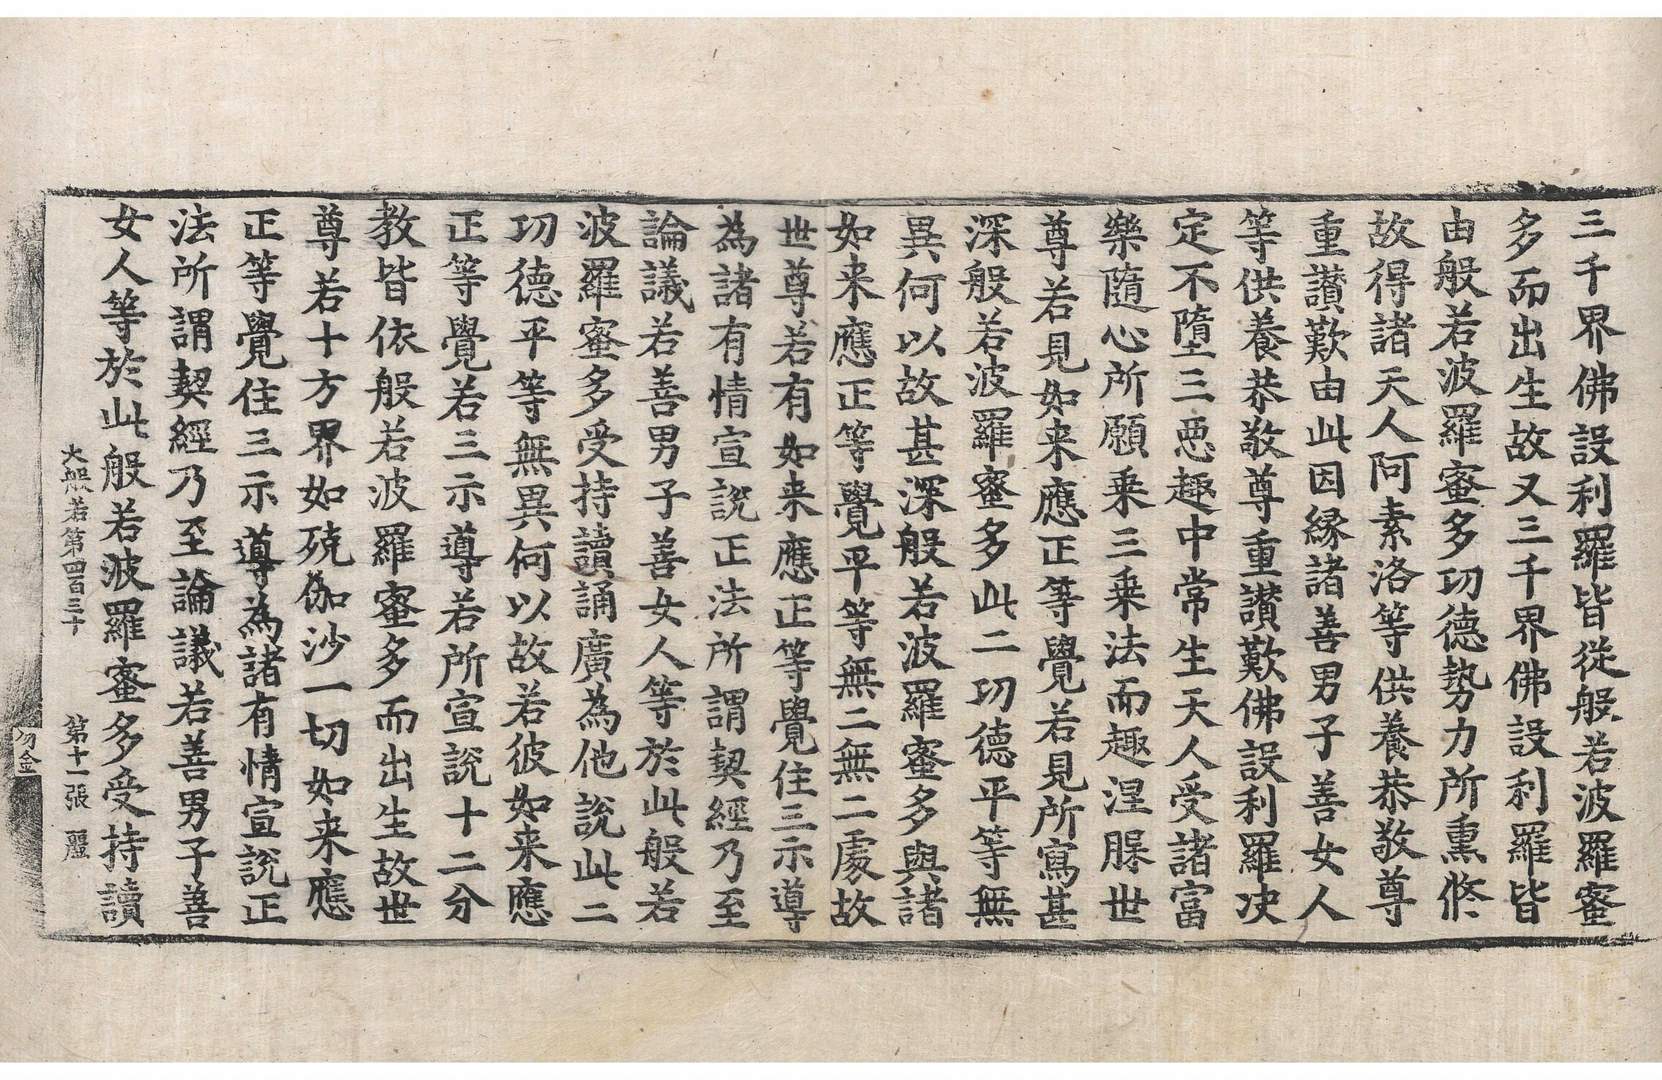 三千界佛設利羅皆從般若波羅蜜
多而出生故又三千界佛設利羅皆
由般若波羅蜜多功德勢力所熏修
故得諸天人阿素洛等供養恭敬尊
重讃歎由此因縁諸善男子善女人
等供養恭敬尊重讃歎佛設利羅决
定不墮三惡趣中常生天人受諸富
樂隨心所願乗三乗法而趣涅槃世
尊若見如来應正等覺若見所寫甚
深般若波羅蜜多此二功德平等無
異何以故甚深般若波羅蜜多與諸
如来應正等覺平等無二無二處故
世尊若有如来應正等覺住三示導
為諸有情宣說正法所謂契經乃至
論議若善男子善女人等於此般若
波羅蜜多受持讀誦廣為他說此二
功德平等無異何以故若彼如来應
正等覺若三示導若所宣說十二分
教皆依般若波羅蜜多而出生故世
尊若十方界如殑伽沙一切如来應
正等覺住三示導為諸有情宣說正
法所謂契經乃至論議若善男子善
女人等於此般若波羅蜜多受持讀
大般若第四百三十 第十一張